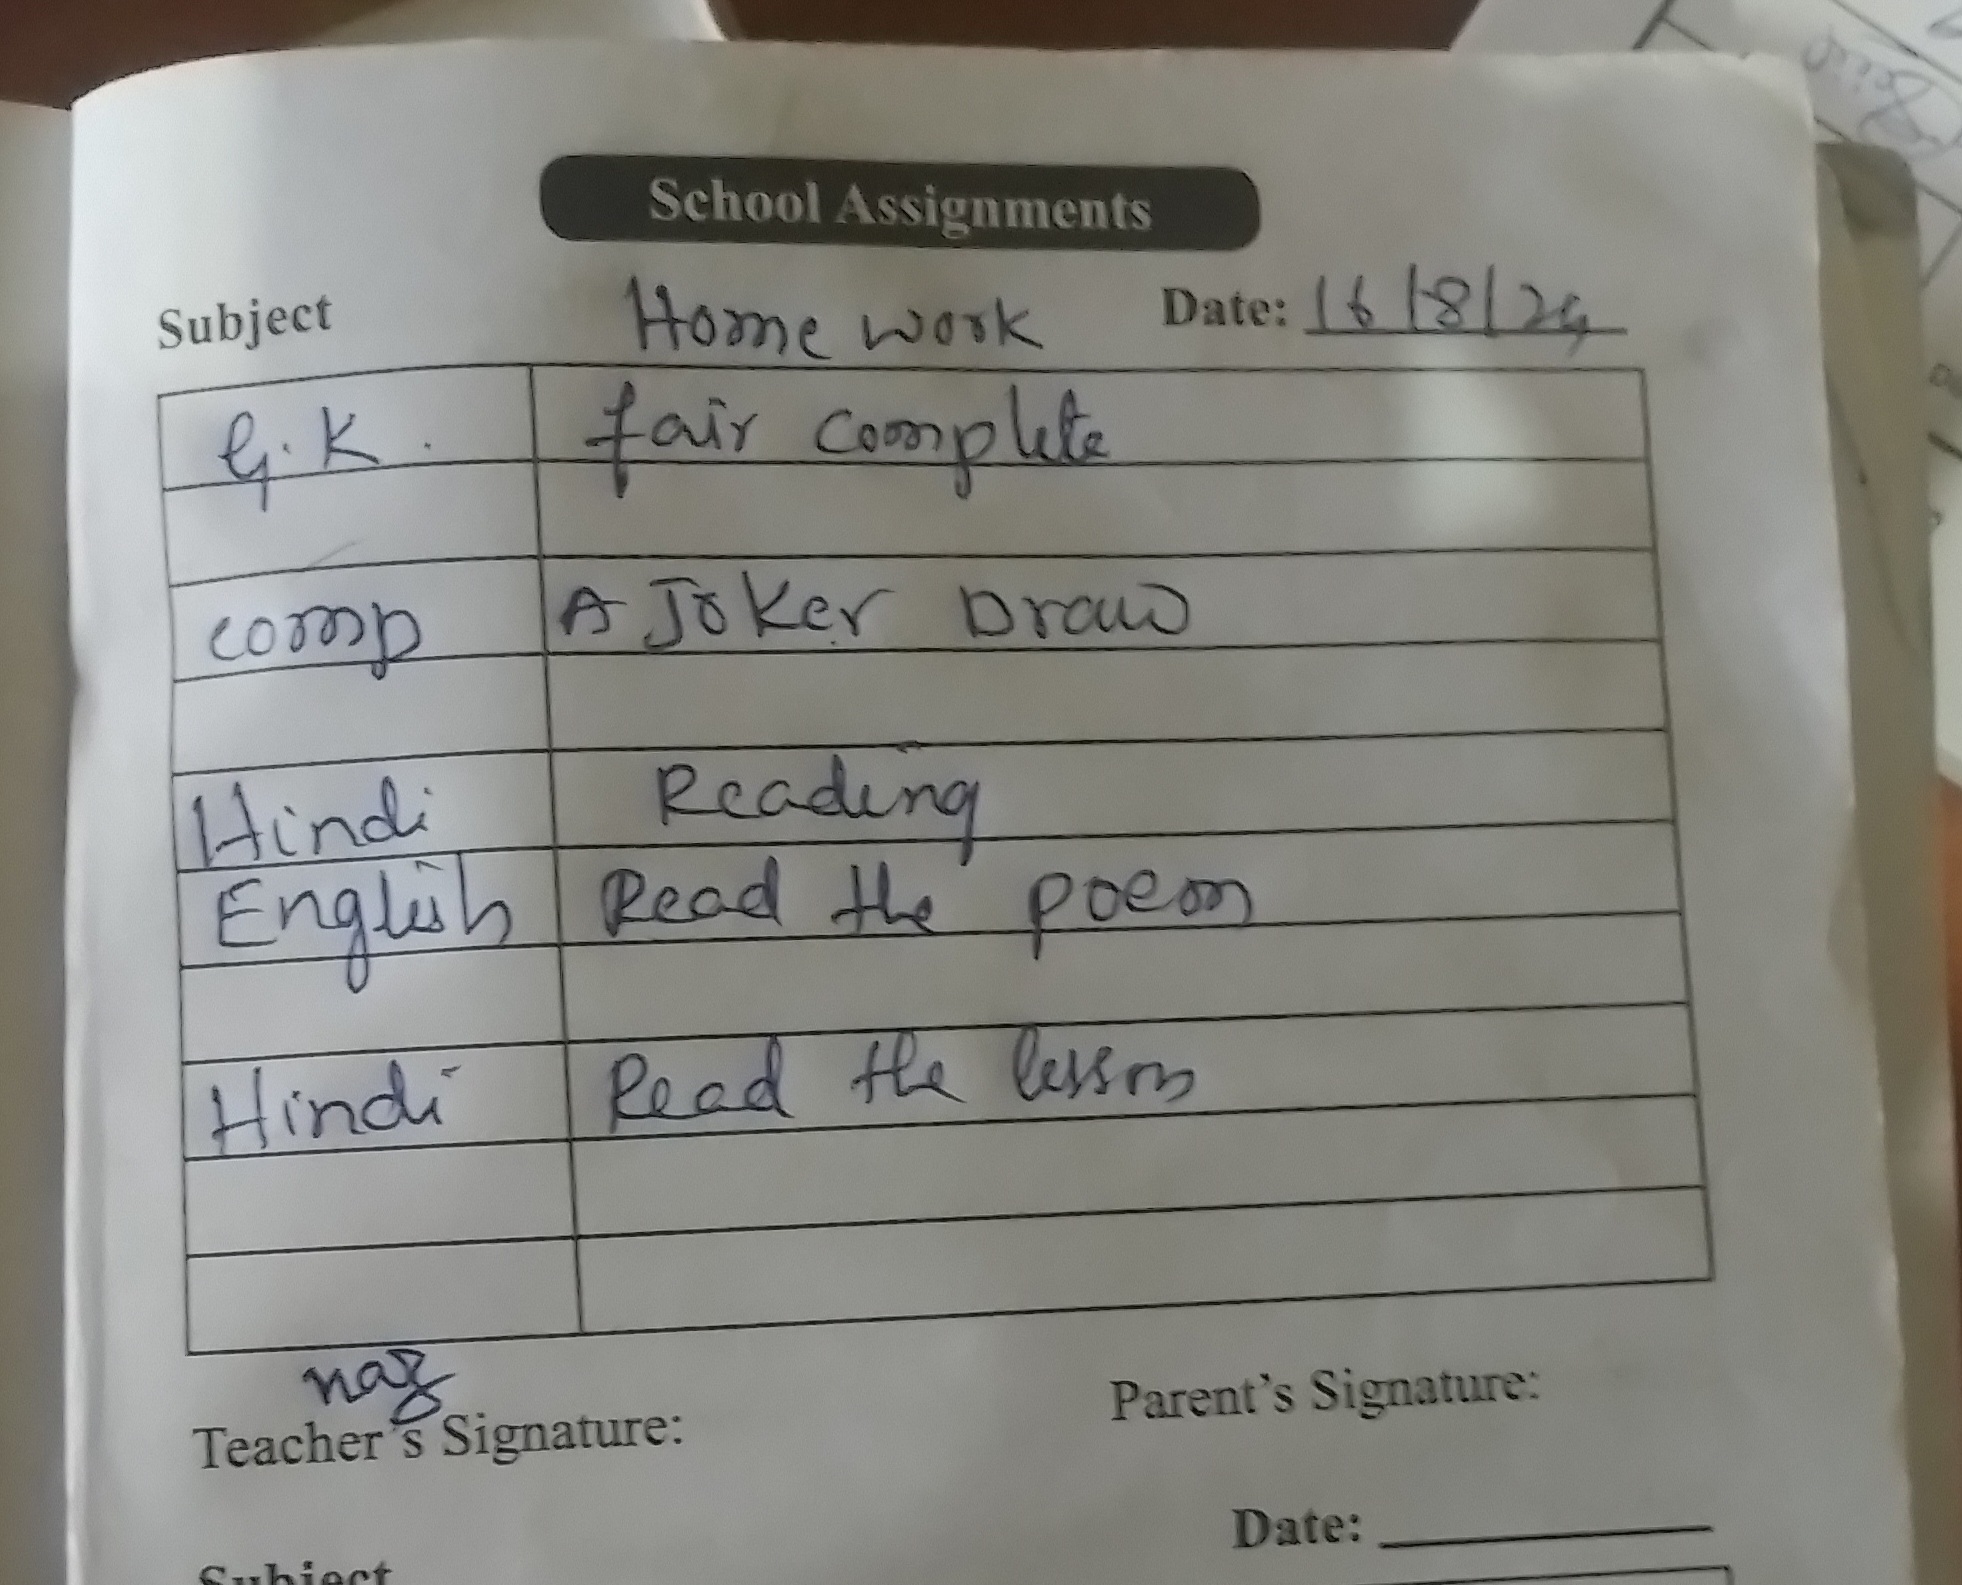 School Assignments
Subject Home work Date: 16/8/24
G.K. fair complete
comp A Joker Draw
Hindi Reading
English Read the poem
Hindi Read the lesson
naz
Teacher's Signature: Parent's Signature:
Date:
Subject